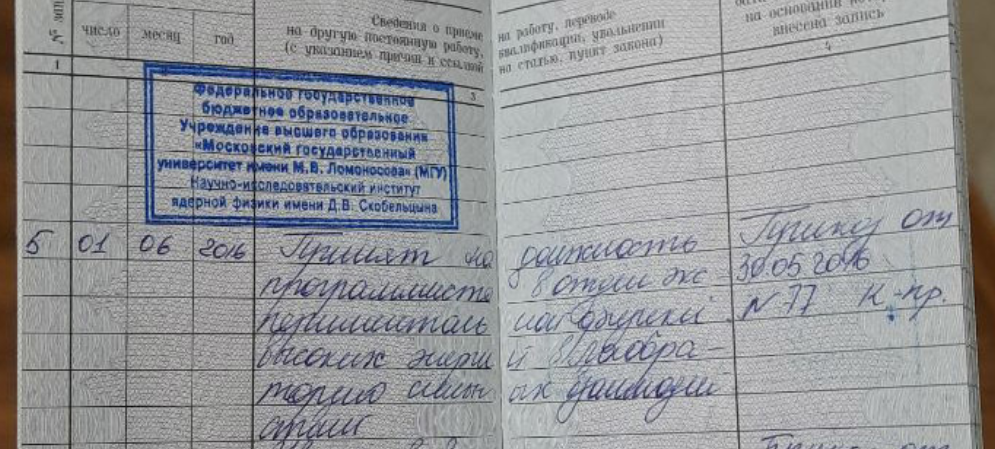 № зап
число
месяц
год
Сведения о приеме
на другую постоянную работу,
(с указанием причин и ссылкой
на работу, переводе
квалификации, увольнении
на статью, пункт закона)
на основании
внесена запись
1
3
4
Федеральное государственное
бюджетное образовательное
Учреждение высшего образования
«Московский государственный
университет имени М.В. Ломоносова» (МГУ)
Научно-исследовательский институт
ядерной физики имени Д.В. Скобельцына
5 01 06 2016 Принят на должность Приказ от
программиста в отдел экс 30.05 2016
перименталь ной физики N 77 к-пр.
высоких энерги й в лабора-
торию сильн ых взаимодей
ствий